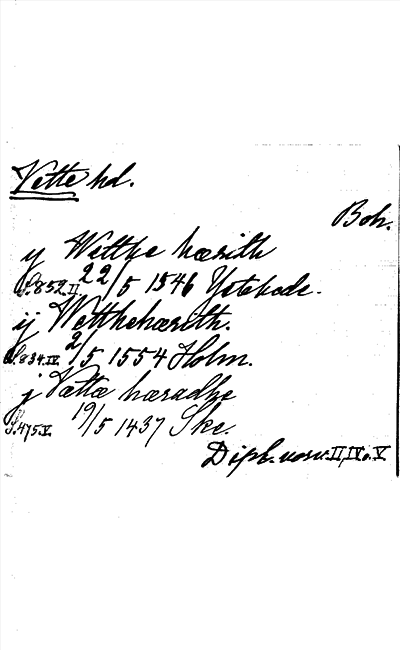 Vette hd.
Boh.
y Wettke hærith
S.852.II. 22/5 1546 Ystehede.
ij Wetthehærith.
S.834.IV. 2/5 1554 Holm.
j Vættæ hæradhe
S.475.V. 19/5 1437 Ske.
Dipl. norv. II, IV o. V